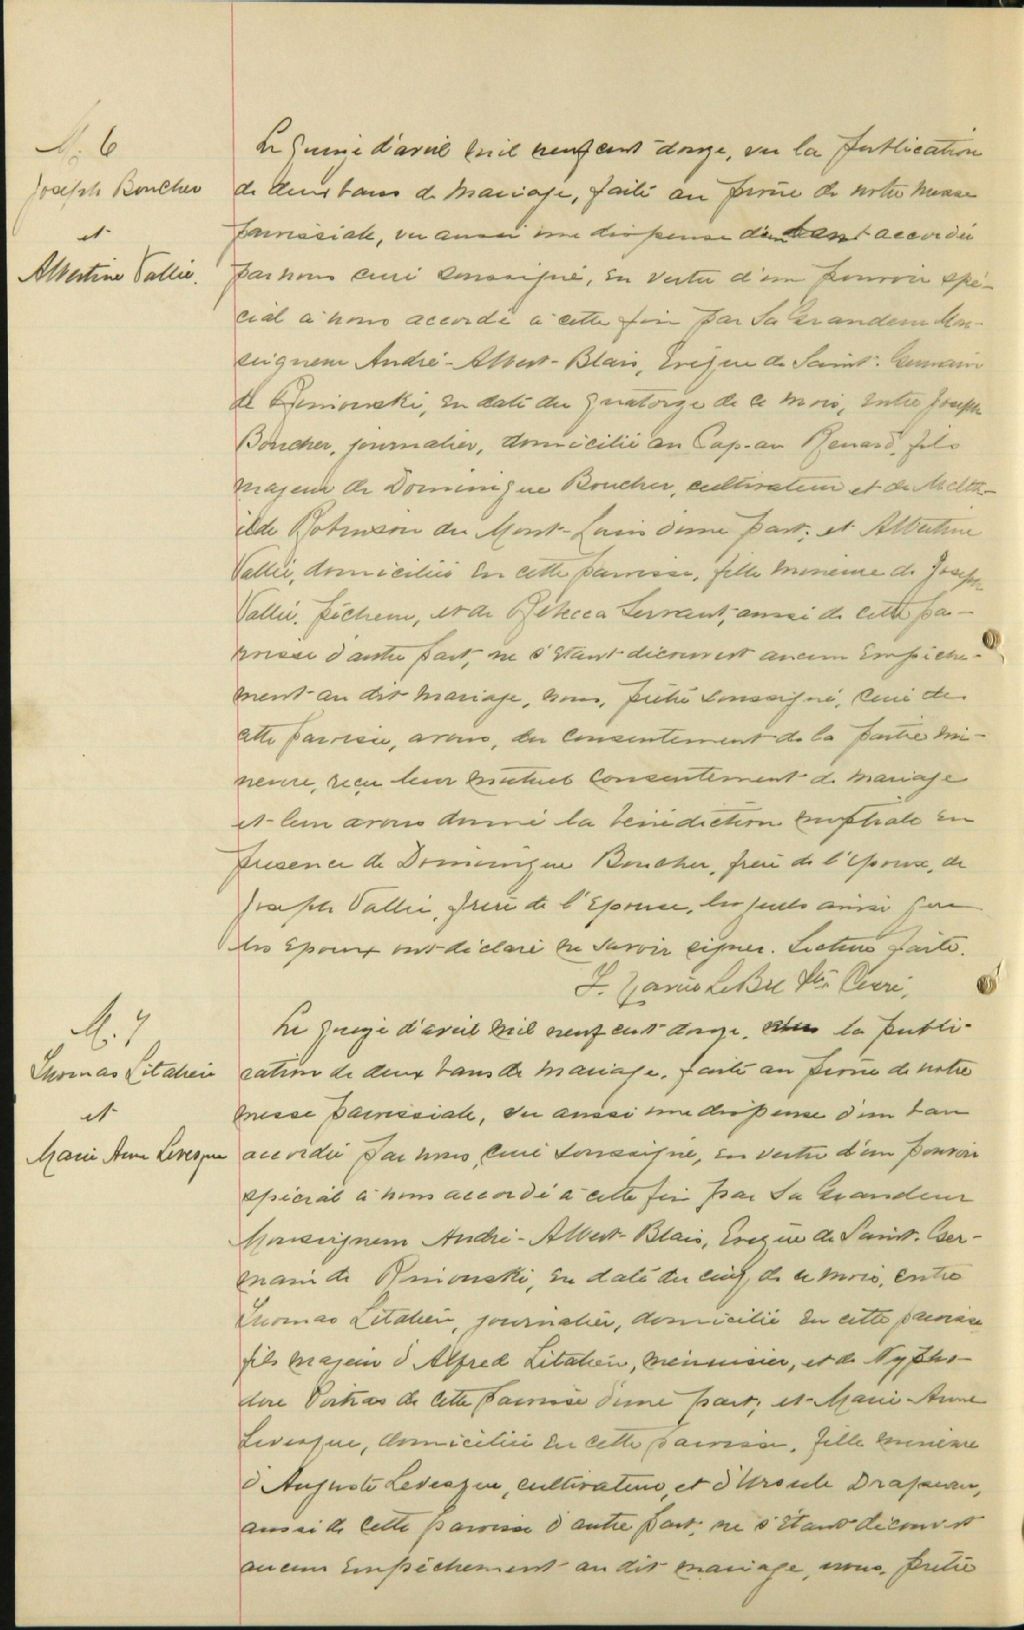 M. 6
Joseph Boucher
et
Albertine Vallée.
Le quinze d'avril mil neuf cent douze, vu la publication
de deux bans de mariage, faite au prône de notre messe
paroissiale, vu aussi une dispense d'un ban accordée
par nous curé soussigné, en vertu d'un pouvoir spé-
cial à nous accordé à cette fin par Sa Grandeur Mon-
seigneur André-Albert Blais, Evêque de Saint-Germain
de Rimouski, en date du quatorze de ce mois, entre Joseph
Boucher, journalier, domicilié au Cap-au Renard, fils
majeur de Dominique Boucher, cultivateur et de Math-
ilde Robinson du Mont-Louis d'une part; et Albertine
Vallée, domiciliée en cette paroisse, fille mineure de Joseph
Vallée, pêcheur, et de Rébecca Servant, aussi de cette pa-
roisse d'autre part, ne s'étant découvert aucun empêche-
ment au dit mariage, nous, prêtre soussigné, curé de
cette paroisse, avons, du consentement de la partie mi-
neure, reçu leur mutuel consentement de mariage
et leur avons donné la bénédiction nuptiale en
présence de Dominique Boucher, frère de l'époux, de
Joseph Vallée, frère de l'épouse, lesquels ainsi que
les époux ont déclaré ne savoir signer. Lecture faite.
F. Xavier LeBel Ptre Curé,
M. 7
Thomas Litalien
et
Marie Anne Levesque
Le quinze d'avril mil neuf cent douze, vu la publi-
cation de deux bans de mariage, faite au prône de notre
messe paroissiale, vu aussi une dispense d'un ban
accordée par nous, curé soussigné, en vertu d'un pouvoir
spécial à nous accordé à cette fin par Sa Grandeur
Monseigneur André-Albert Blais, Evêque de Saint-Ger-
main de Rimouski, en date du cinq de ce mois, entre
Thomas Litalien, journalier, domicilié en cette paroisse
fils majeur d'Alfred Litalien, menuisier, et de Nympho-
dore Poitras de cette paroisse d'une part; et Marie-Anne
Levesque, domiciliée en cette paroisse, fille mineure
d'Auguste Levesque, cultivateur, et d'Ursule Drapeau,
aussi de cette paroisse d'autre part, ne s'étant découvert
aucun empêchement au dit mariage, nous, prêtre